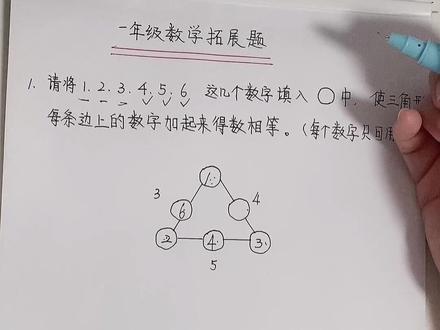 一年级数学拓展题
1. 请将1.2.3.4.5.6 这几个数字填入○中,使三角形
每条边上的数字加起来得数相等。(每个数字只可用
1
3 6 4
2 4 3
5